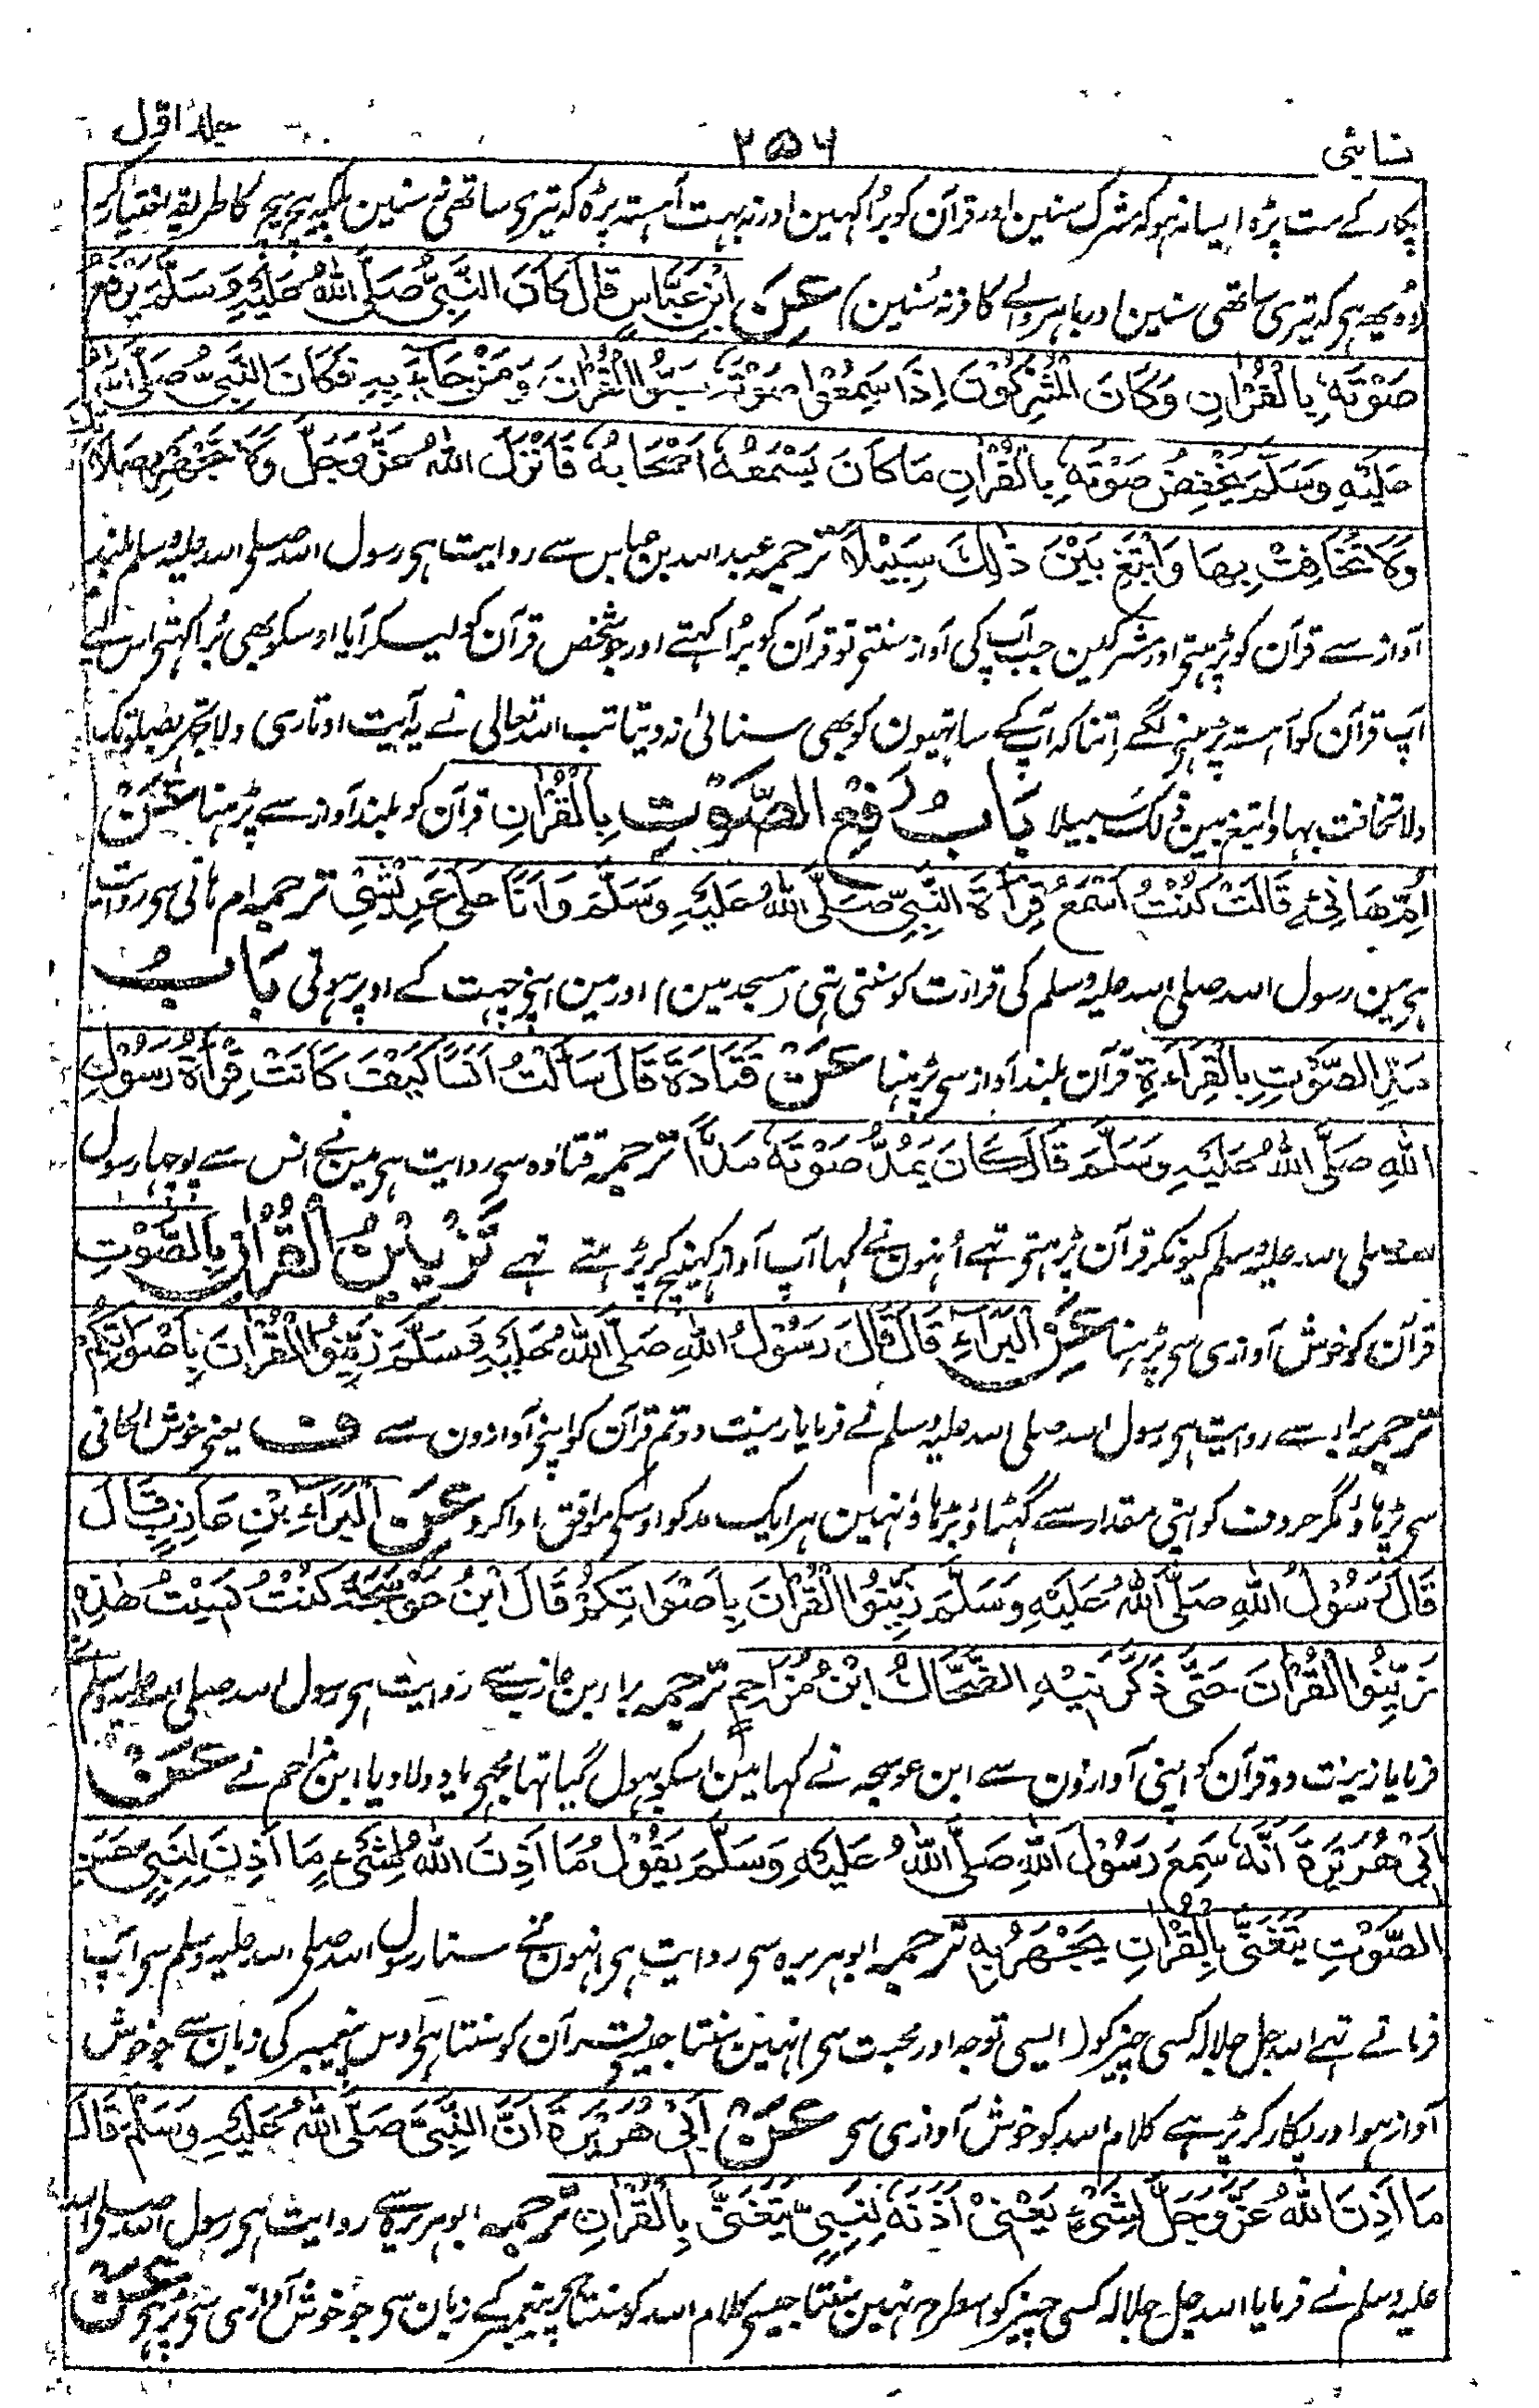 نسائی ۲۵۶ جلد اول
پکار کے مت پڑہ ایسا نہو کہ مشرک سنین اور قرآن کو برا کہین اور نہ بہت آہستہ پڑہ کہ تیری ساتھی نہ سنین بلکہ بیچ بیچ کا طریقہ اختیار کر
وہ یہہ ہی کہ تیری ساتھی سنین اور باہر والے کافر نہ سنین) عَنْ ابْنِ عَبَّاسٍ قَالَ كَانَ النَّبِيُّ صَلَّى اللهُ عَلَيْهِ وَسَلَّمَ يَرْفَعُ
صَوْتَهُ بِالْقُرْآنِ وَكَانَ الْمُشْرِكُوْنَ اِذَا سَمِعُوْا صَوْتَهُ سَبُّوا الْقُرْآنَ وَمَنْ جَآءَ بِهِ فَكَانَ النَّبِيُّ صَلَّى اللهُ
عَلَيْهِ وَسَلَّمَ يَخْفِضُ صَوْتَهُ بِالْقُرْآنِ مَا كَانَ يَسْمَعُهُ اَصْحَابُهُ فَاَنْزَلَ اللهُ عَزَّوَجَلَّ وَلَا تَجْهَرْ بِصَلَاتِكَ
وَلَا تُخَافِتْ بِهَا وَابْتَغِ بَيْنَ ذٰلِكَ سَبِيْلًا ترجمہ عبد اللہ بن عباس سے روایت ہی رسول اللہ صلی اللہ علیہ وسلم بلند
آواز سے قرآن کو پڑہتے اور مشرکین جب آپ کی آواز سنتے تو قرآن کو برا کہتے اور جو شخص قرآن کو لیکر آیا اوسکو بھی برا کہتے اس لئے
آپ قرآن کو آہستہ پڑہنے لگے اتنا کہ آپ کے ساتہیون کو بھی سنائی نہ دیتا تب اللہ تعالی نے یہ آیت اوتاری ولا تجہر بصلوتک
ولا تخافت بہا وابتغ بین ذلک سبیلا بَابُ رَفْعِ الصَّوْتِ بِالْقُرْآنِ قرآن کو بلند آواز سے پڑہنا عَنْ
اُمِّ هَانِئٍ قَالَتْ كُنْتُ اَسْمَعُ قِرَآءَةَ النَّبِيِّ صَلَّى اللهُ عَلَيْهِ وَسَلَّمَ وَاَنَا عَلَى عَرِيْشِيْ ترجمہ ام ہانی سے روایت
ہی مین رسول اللہ صلی اللہ علیہ وسلم کی قراءت کو سنتی تہی (مسجد مین) اور مین اپنی چہت کے اوپر ہوتی بَابُ
مَدِّ الصَّوْتِ بِالْقِرَاءَةِ قرآن بلند آواز سے پڑہنا عَنْ قَتَادَةَ قَالَ سَاَلْتُ اَنَسًا كَيْفَ كَانَتْ قِرَآءَةُ رَسُوْلِ
اللهِ صَلَّى اللهُ عَلَيْهِ وَسَلَّمَ قَالَ كَانَ يَمُدُّ صَوْتَهُ مَدًّا ترجمہ قتادہ سے روایت ہی مین نے انس سے پوچہا رسول
اللہ صلی اللہ علیہ وسلم کیونکر قرآن پڑہتے تہے اُنہون نے کہا آپ آواز کہینچ کر پڑہتے تہے تَزْيِيْنُ الْقُرْآنِ بِالصَّوْتِ
قرآن کو خوش آوازی سے پڑہنا عَنِ الْبَرَاءِ قَالَ قَالَ رَسُوْلُ اللهِ صَلَّى اللهُ عَلَيْهِ وَسَلَّمَ زَيِّنُوا الْقُرْآنَ بِاَصْوَاتِكُمْ
ترجمہ براء سے روایت ہی رسول اللہ صلی اللہ علیہ وسلم نے فرمایا زینت دو تم قرآن کو اپنی آوازون سے ف یعنی خوش الحانی
سے پڑہا کرو مگر حروف کو اپنی مقدار سے گہٹاؤ بڑہاؤ نہین ہر ایک مد کو اوسکے موافق ادا کرو عَنْ الْبَرَاءِ بْنِ عَازِبٍ قَالَ
قَالَ رَسُوْلُ اللهِ صَلَّى اللهُ عَلَيْهِ وَسَلَّمَ زَيِّنُوا الْقُرْآنَ بِاَصْوَاتِكُمْ قَالَ ابْنُ عَوْسَجَةَ كُنْتُ نَسِيْتُ هٰذِهِ
زَيِّنُوا الْقُرْآنَ حَتَّى ذَكَّرَنِيْهِ الضَّحَّاكُ ابْنُ مُزَاحِمٍ ترجمہ براء بن عازب سے روایت ہی رسول اللہ صلی اللہ علیہ وسلم نے
فرمایا زینت دو قرآن کو اپنی آوازون سے ابن عوسجہ نے کہا مین اسکو بہول گیا تہا مجہے یاد دلا دیا ابن مزاحم نے عَنْ
اَبِيْ هُرَيْرَةَ اَنَّهُ سَمِعَ رَسُوْلَ اللهِ صَلَّى اللهُ عَلَيْهِ وَسَلَّمَ يَقُوْلُ مَا اَذِنَ اللهُ لِشَيْءٍ مَا اَذِنَ لِنَبِيٍّ حَسَنِ
الصَّوْتِ يَتَغَنَّى بِالْقُرْآنِ يَجْهَرُ بِهِ ترجمہ ابو ہریرہ سے روایت ہی انہون نے سنا رسول اللہ صلی اللہ علیہ وسلم سے آپ
فرماتے تہے اللہ جل جلالہ کسی چیز کو (ایسی توجہ اور محبت سے) نہین سنتا جیسے قرآن کو سنتا ہی اوس پیغمبر کی زبان سے جو خوش
آواز ہو اور پکار کر پڑہے کلام اللہ کو خوش آوازی سے عَنْ اَبِيْ هُرَيْرَةَ اَنَّ النَّبِيَّ صَلَّى اللهُ عَلَيْهِ وَسَلَّمَ قَالَ
مَا اَذِنَ اللهُ عَزَّوَجَلَّ لِشَيْءٍ يَعْنِيْ اَذَنَهُ لِنَبِيٍّ يَتَغَنَّى بِالْقُرْآنِ ترجمہ ابو ہریرہ سے روایت ہی رسول اللہ صلی اللہ
علیہ وسلم نے فرمایا اللہ جل جلالہ کسی چیز کو اسطرح نہین سنتا جیسے کلام اللہ کو سنتا ہی پیغمبر کے زبان سے جو خوش آوازی سے پڑہے عَنْ